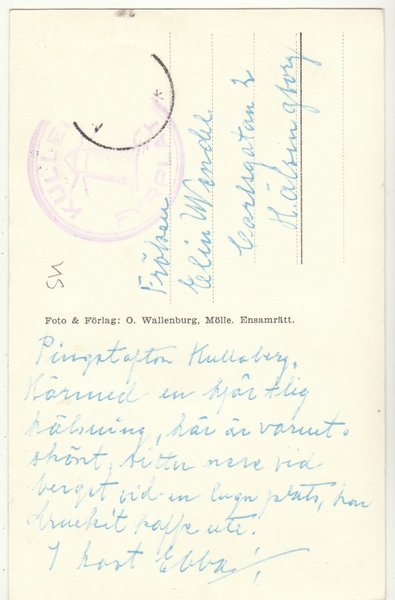 KULLENS FYRPLATS
Fröken
Elin Wendel
Carlsgatan 2
Hälsingborg
SH
Foto & Förlag: O. Wallenburg, Mölle. Ensamrätt.
Pingstafton Kullaberg.
Härmed en hjärtlig
hälsning, här är varmt o
skönt, sitter nere vid
berget vid en lugn plats, har
druckit kaffe ute.
I hast Ebba!